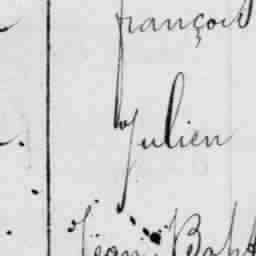 françois
Julien
Jean Bapt